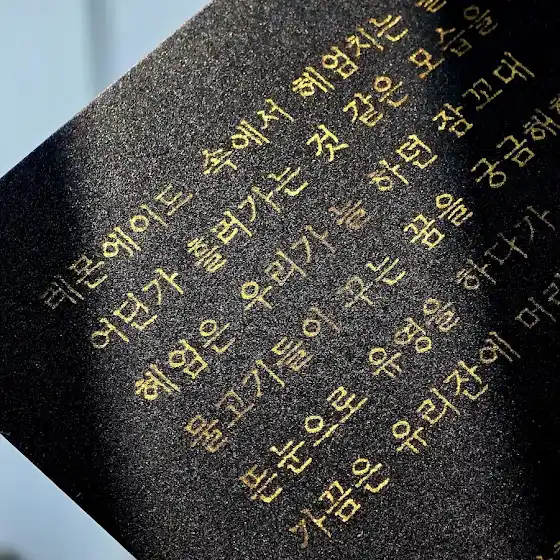 레몬에이드 속에서 헤엄치는
어딘가 흘러가는 것 같은 모습을
헤엄은 우리가 늘 하던 잠꼬대
물고기들이 꾸는 꿈을 궁금해
뜬눈으로 유영을 하다가
가끔은 유리잔에 머리